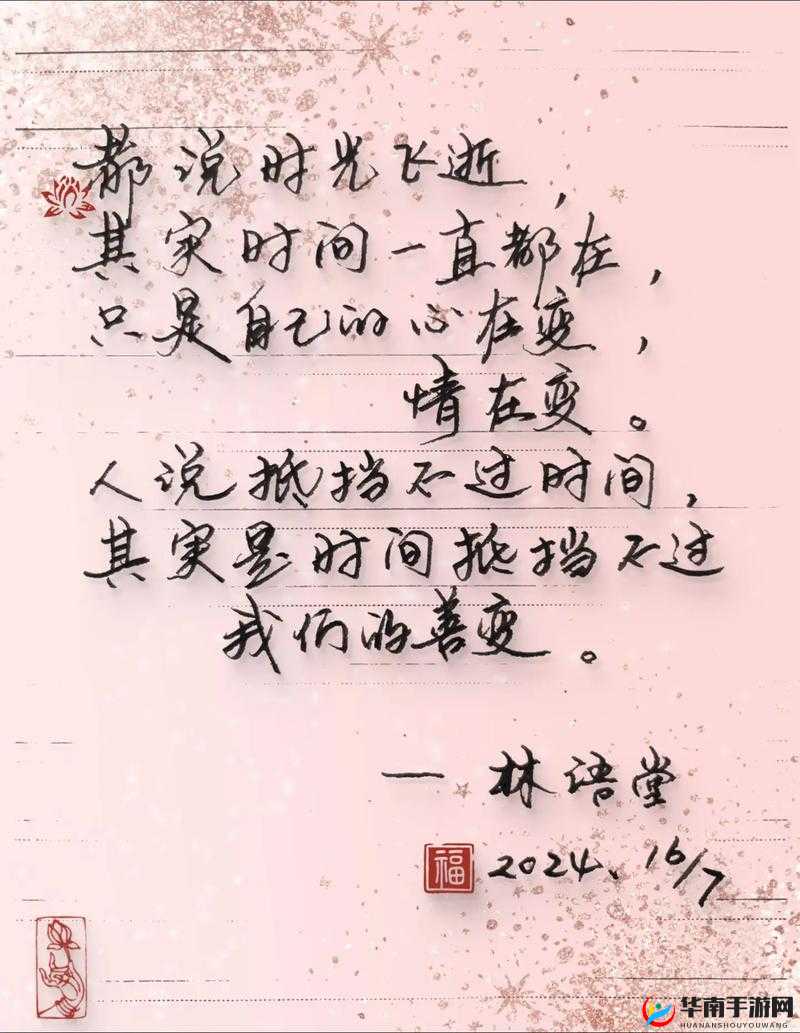 都说时光飞逝，
其实时间一直都在，
只是自己的心在变，
情在变。
人说抵挡不过时间，
其实是时间抵挡不过
我们的善变。
— 林语堂
福 2024、16/7
华南手游网
HUANANSHOUYOUWANG